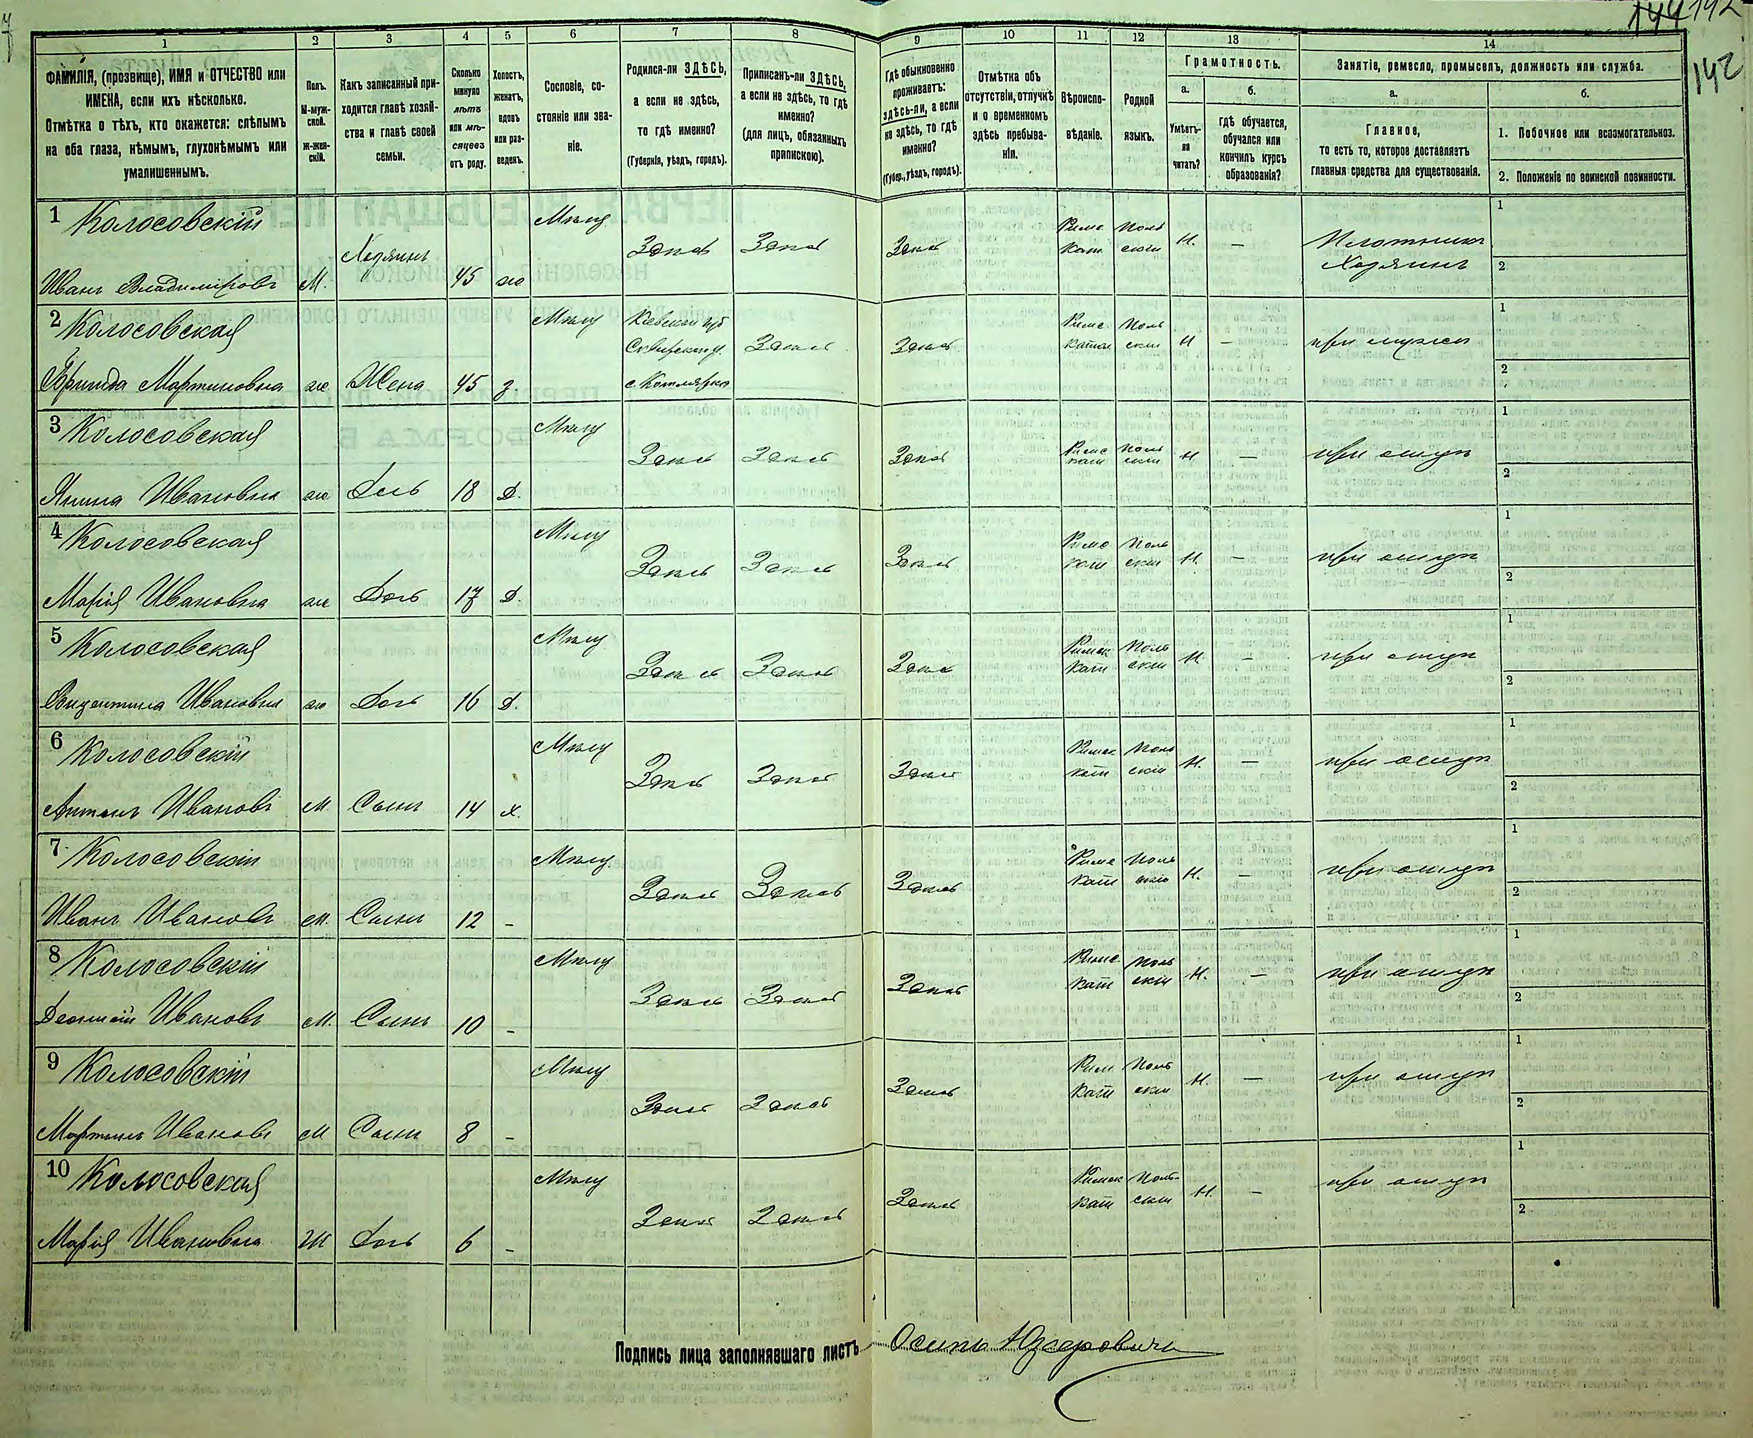 144 142
142
1 2 3 4 5 6 7 8 9 10 11 12 13 14
ФАМИЛІЯ, (прозвище), ИМЯ и ОТЧЕСТВО или
ИМЕНА, если ихъ нѣсколько.
Отмѣтка о тѣхъ, кто окажется: слѣпымъ
на оба глаза, нѣмымъ, глухонѣмымъ или
умалишеннымъ.
Полъ.
М-муж-
ской.
Ж-жен-
скій.
Какъ записанный при-
ходится главѣ хозяй-
ства и главѣ своей
семьи.
Сколько
минуло
лѣтъ
или мѣ-
сяцевъ
отъ роду.
Холостъ,
женатъ,
вдовъ
или раз-
веденъ.
Сословіе, со-
стояніе или зва-
ніе.
Родился-ли ЗДѢСЬ,
а если не здѣсь,
то гдѣ именно?
(Губернія, уѣздъ, городъ).
Приписанъ-ли ЗДѢСЬ,
а если не здѣсь, то гдѣ
именно?
(для лицъ, обязанныхъ
припискою).
Гдѣ обыкновенно
проживаетъ:
здѣсь-ли, а если
не здѣсь, то гдѣ
именно?
(Губер., уѣздъ, городъ).
Отмѣтка объ
отсутствіи, отлучкѣ
и о временномъ
здѣсь пребыва-
ніи.
Вѣроиспо-
вѣданіе.
Родной
языкъ.
Грамотность.
а.
Умѣетъ-
ли
читать?
б.
гдѣ обучается,
обучался или
кончилъ курсъ
образованія?
Занятіе, ремесло, промыселъ, должность или служба.
а.
Главное,
то есть то, которое доставляетъ
главныя средства для существованія.
б.
1. Побочное или вспомогательное.
2. Положеніе по воинской повинности.
1 Колосовскій Мѣщ 1
Хозяинъ Здѣсь Здѣсь Здѣсь Римс Поль Н. —
Кат скій Хозяинъ 2
Иванъ Владиміровъ М. 45 ж
2 Колосовская Мѣщ Кіевская губ Римс Поль 1
Сквирскаго у. Здѣсь Здѣсь катол скій Н — при мужѣ
Мартиновна ж Жена 45 з. 2
3 Колосовская Мѣщ 1
Здѣсь Здѣсь Здѣсь Римс кат Поль скій Н — при отцѣ
Янина Ивановна ж Дочь 18 Д. 2
4 Колосовская Мѣщ 1
Здѣсь Здѣсь Здѣсь Римс кат Поль скій Н. — при отцѣ
Марія Ивановна ж Дочь 17 Д. 2
5 Колосовская Мѣщ 1
Здѣсь Здѣсь Здѣсь Римск кат Поль скій Н — при отцѣ
Ивановна ж Дочь 16 Д. 2
6 Колосовскій Мѣщ 1
Здѣсь Здѣсь Здѣсь Римск кат Поль скій Н. — при отцѣ
Антонъ Ивановъ М Сынъ 14 Х. 2
7 Колосовскій Мѣщ 1
Здѣсь Здѣсь Здѣсь Римс кат Поль скій Н. — при отцѣ
Иванъ Ивановъ М. Сынъ 12 - 2
8 Колосовскій Мѣщ 1
Здѣсь Здѣсь Здѣсь Римс кат Поль скій Н. — при отцѣ
Ивановъ М. Сынъ 10 - 2
9 Колосовскій Мѣщ 1
Здѣсь Здѣсь Здѣсь Рим кат Поль скій Н. — при отцѣ
Мартинъ Ивановъ М Сынъ 8 - 2
10 Колосовская Мѣщ 1
Здѣсь Здѣсь Здѣсь Римск кат Поль- скій Н. — при отцѣ
Марія Ивановна Ж Дочь 6 - 2
Подпись лица заполнявшаго листъ Осипъ